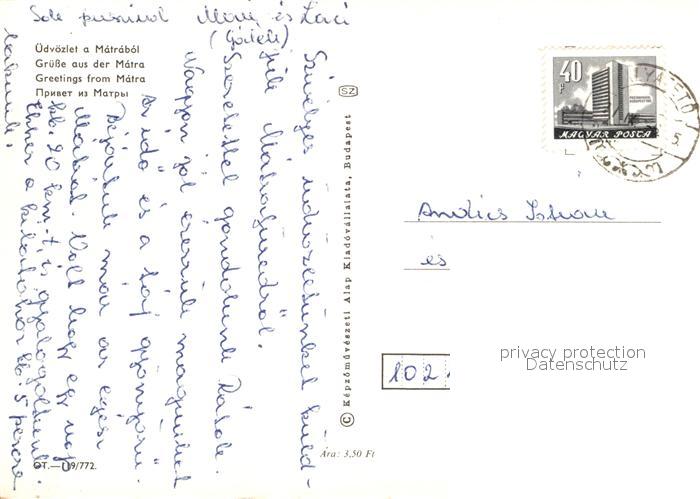 Üdvözlet a Mátrából
Grüße aus der Mátra
Greetings from Mátra
Привет из Матры
SZ
40 f
MAGYAR POSTA
Szívélyes üdvözletünket küld-
jük Mátrafüredről.
Szeretettel gondolunk Rátok.
Nagyon jól érezzük magunkat
Az idő és a táj gyönyörű.
Bejártuk már az egész
Mátrát. Volt hogy egy nap
kb. 20 km-t is gyalogoltunk.
Ehhez a kilátóhoz kb. 5 percre
lakunk.
Sok puszival Móni és Laci
András István
és
102.
privacy protection
Datenschutz
© Képzőművészeti Alap Kiadóvállalata, Budapest
Ára: 3,50 Ft
OT.—U9/772.